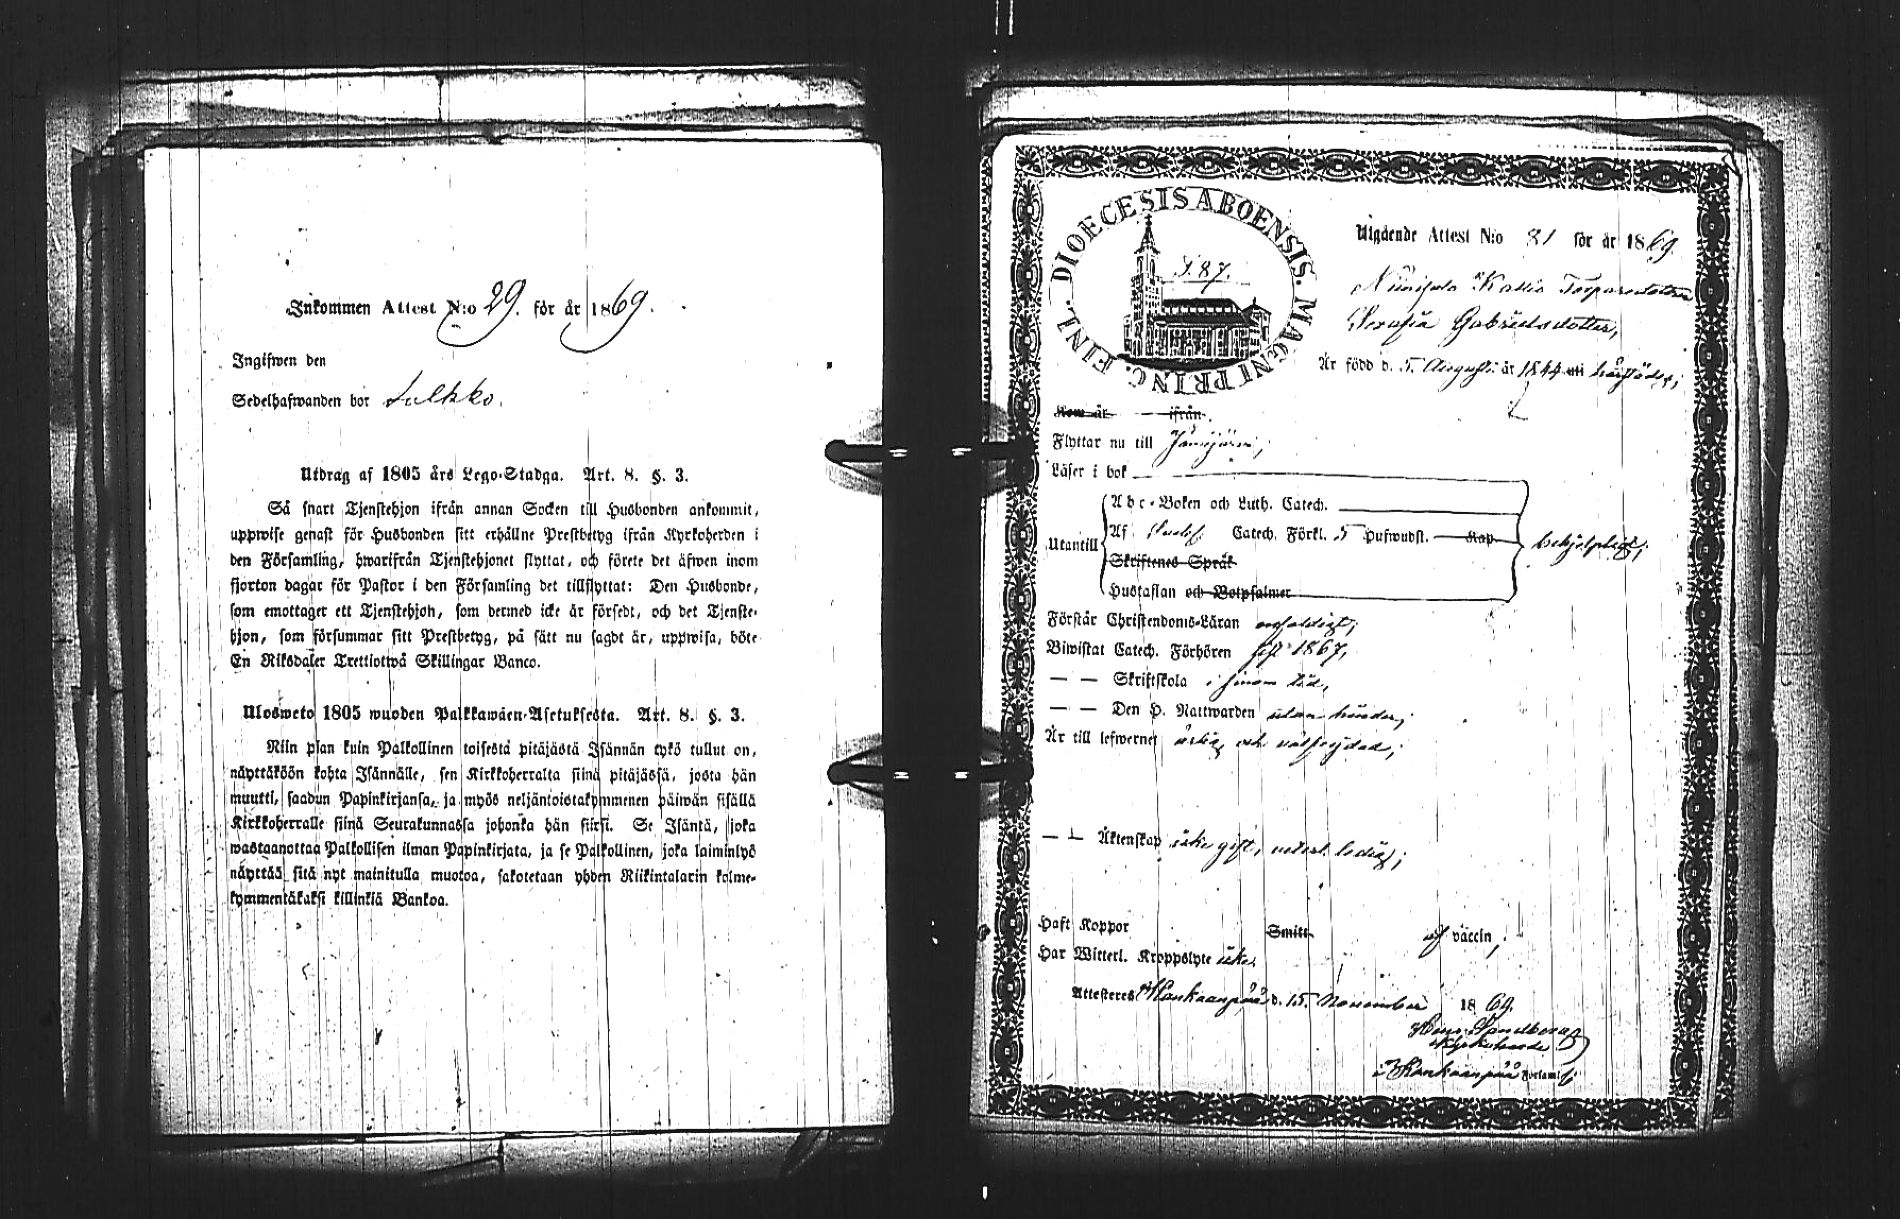 Inkommen Attest N:o 29. för år 1869.
Ingifwen den
Sedelhafwanden bor Sulkko.
Utdrag af 1805 års Lego-Stadga. Art. 8. §. 3.
Så snart Tjenstehjon ifrån annan Socken till Husbonden ankommit,
uppwise genast för Husbonden sitt erhållne Prestbetyg ifrån Kyrkoherden i
den Församling, hwarifrån Tjenstehjonet flyttat, och förete det äfwen inom
fjorton dagar för Pastor i den Församling det tillflyttat: Den Husbonde,
som emottager ett Tjenstehjon, som dermed icke är försedt, och det Tjenste-
hjon, som försummar sitt Prestbetyg, på sätt nu sagdt är, uppwisa, böte
En Riksdaler Trettiotwå Skillingar Banco.
Ulosweto 1805 wuoden Palkkawäen-Asetuksesta. Art. 8. §. 3.
Niin pian kuin Palkollinen toisesta pitäjästä Isännän tykö tullut on,
näyttäköön kohta Isännälle, sen Kirkkoherralta siinä pitäjässä, josta hän
muutti, saadun Papinkirjansa, ja myös neljäntoistakymmenen päiwän sisällä
Kirkkoherralle siinä Seurakunnassa johonka hän siirsi. Se Isäntä, joka
wastaanottaa Palkollisen ilman Papinkirjata, ja se Palkollinen, joka laiminlyö
näyttää sitä nyt mainitulla muotoa, sakotetaan yhden Riikintalarin kolme-
kymmentäkaksi killinkiä Bankoa.
FINL. DIOECESIS ABOENSIS. MAGNI PRINC.
S. 87.
Utgående Attest N:o 81 för år 1869.
Kallio Torparedottren
Serafia Gabrielsdotter,
Är född d. 5 Augusti år 1844 uti härstädes;
Kom år ifrån
Flyttar nu till Jämijärvi;
Läser i bok
Abc-Boken och Luth. Catech.
Utantill Af Catech. Förkl. 5 Hufwudst. Kap
Skriftenes Språk
behjelpligt;
Hustaflan och Botpsalmer
Förstår Christendoms-Läran enfaldigt;
Biwistat Catech. Förhören sist 1867,
— — Skriftskola i sinom tid,
— — Den H. Nattwarden utan hinder;
Är till lefwernet ärlig och välfrejdad;
— — Äktenskap icke gift, veterl. ledig;
Haft Koppor Smitt af vaccin,
Har Witterl. Kroppslyte icke.
Attesteras Kankaanpää d. 15 November 1869.
Sandberg
Kyrkoherde
i Kankaanpää Församl.